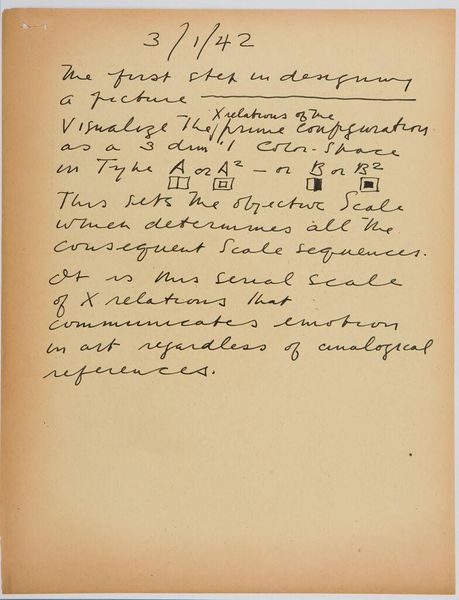 3/1/42
The first step in designing
a picture
X relations of the
Visualize the prime configuration
as a 3 dim'l Color-Space
in Type A or A² – or B or B²
This sets the objective Scale
which determines all the
consequent Scale sequences.
It is this serial scale
of X relations that
communicates emotion
in art regardless of analogical
references.